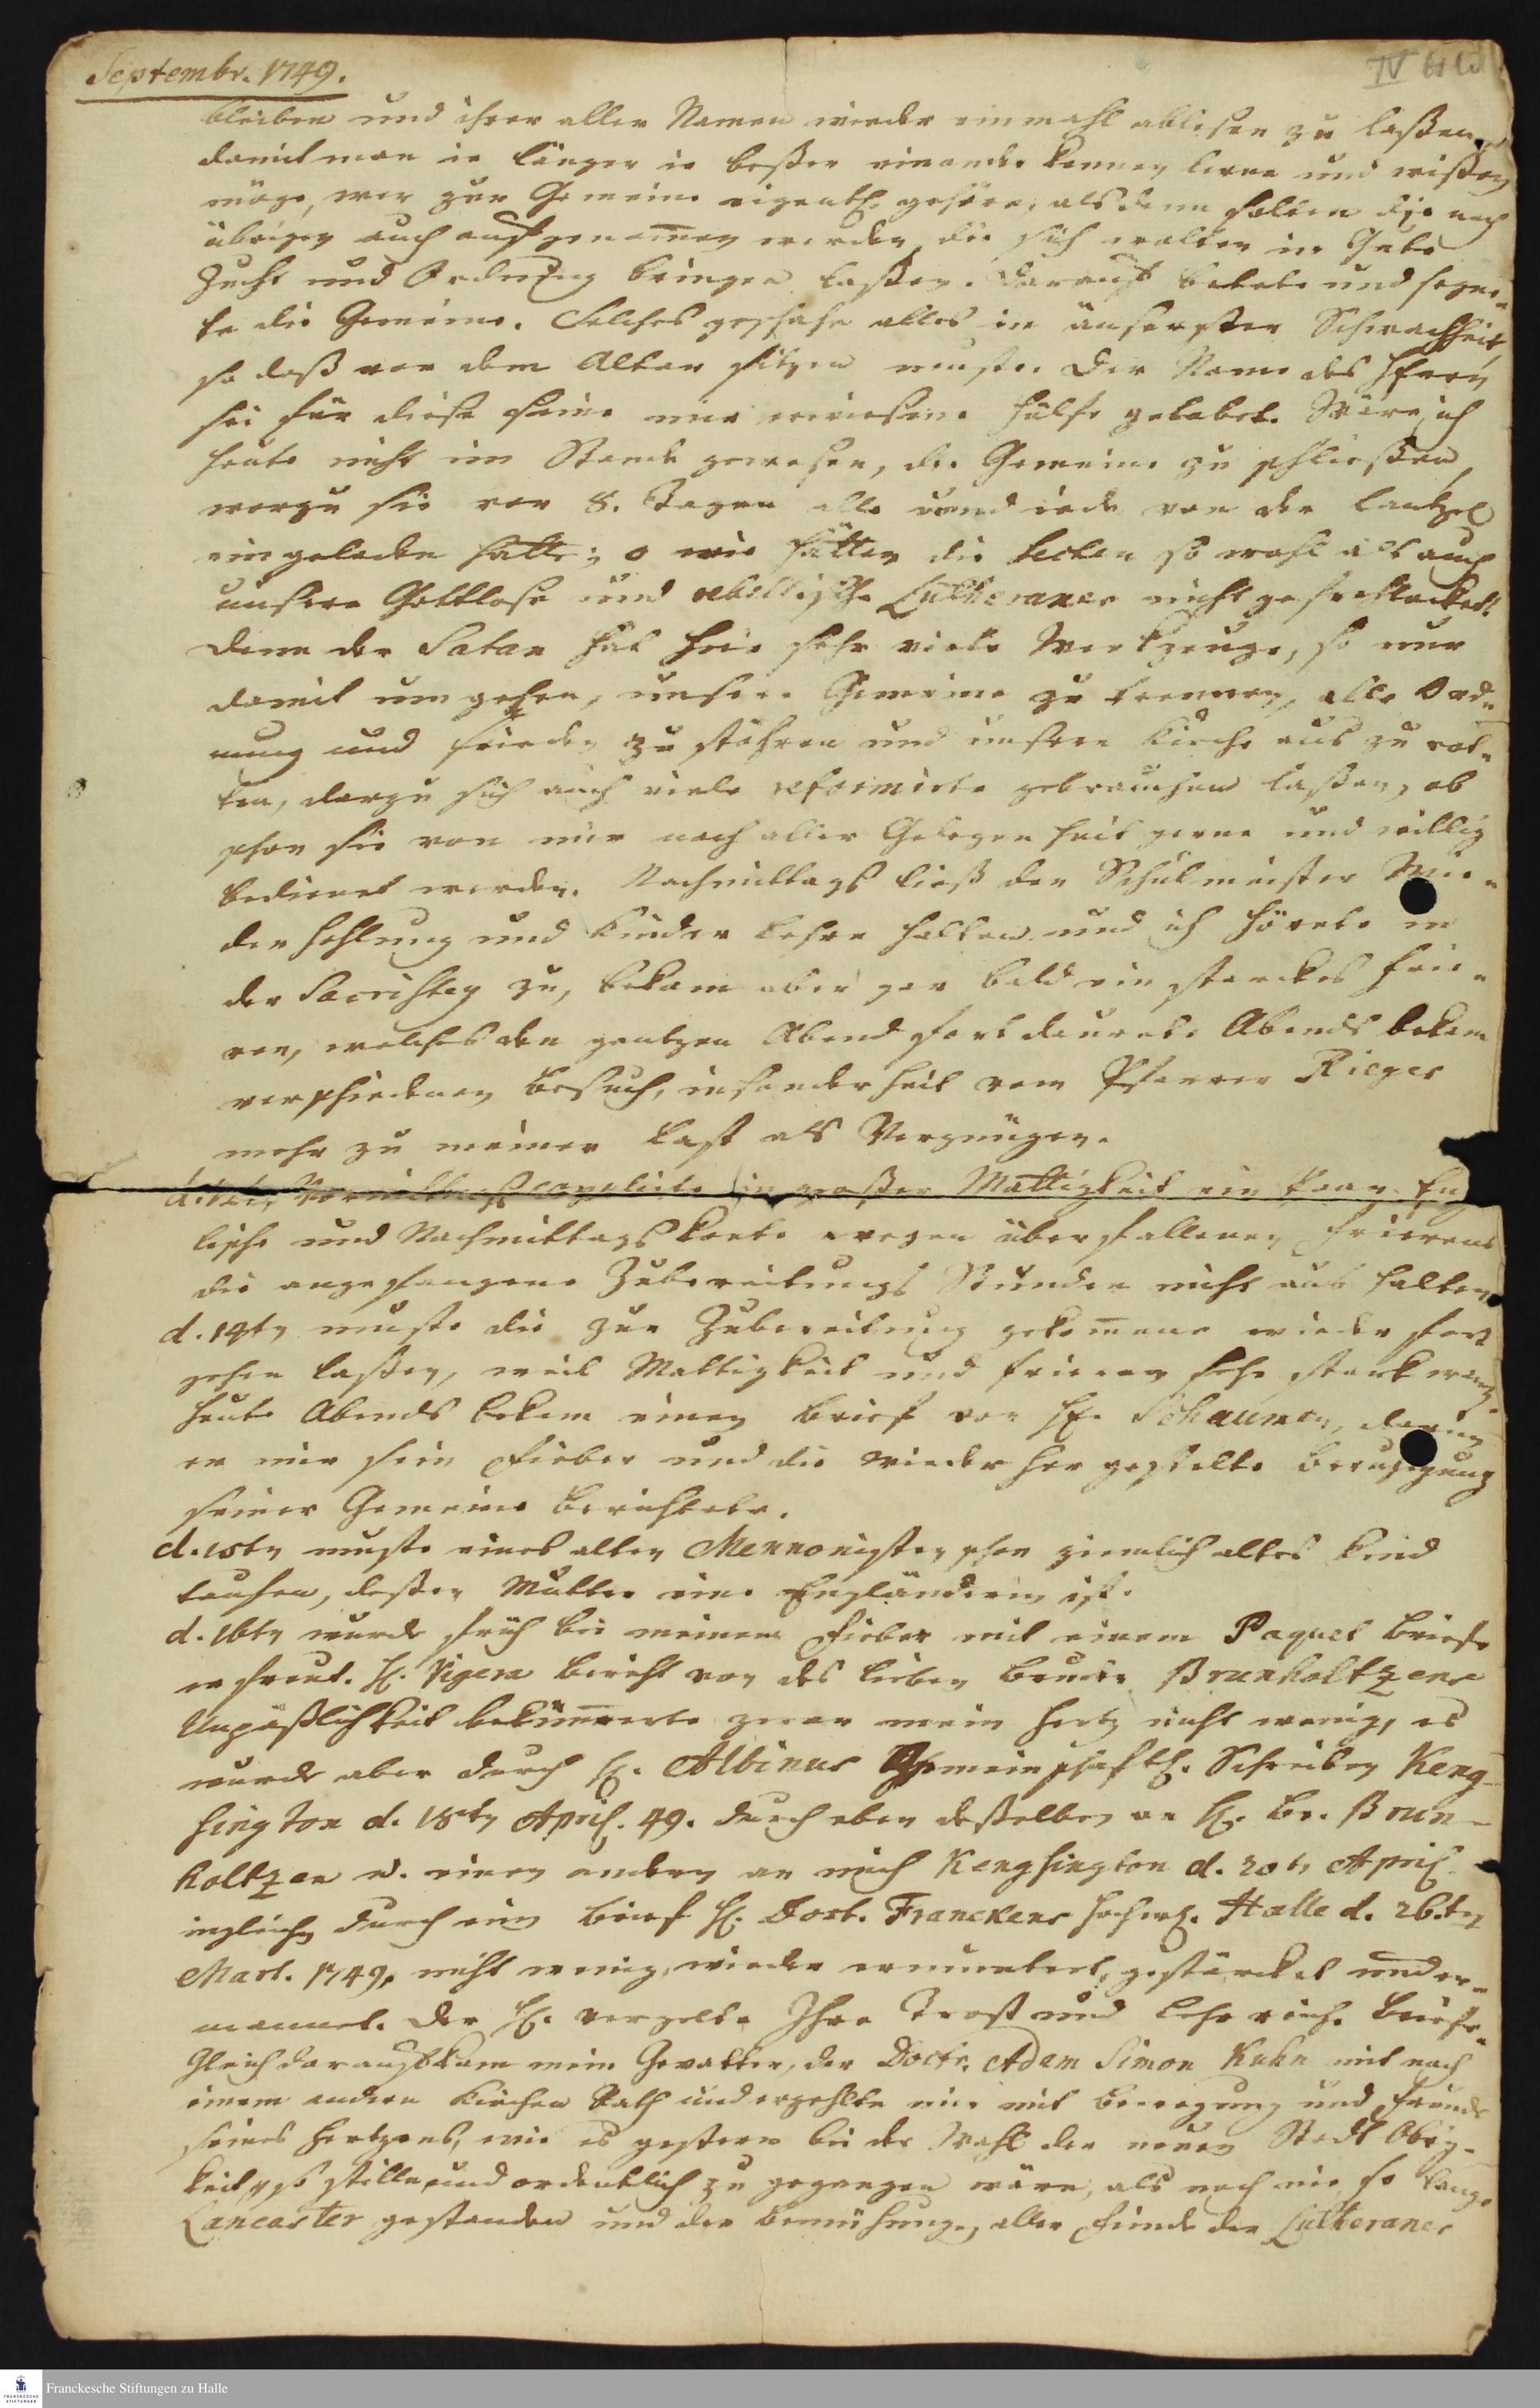 Septembr. 1749.
bleiben und ihrer aller Namen wieder einmahl ablesen zu laßen,
damit man ie länger ie beßer einander kennen lerne und wißen
möge, wer zur Gemeine eigentl. gehöre, alsdenn sollen die noch
übrigen auch aufgenom̅en werden, die sich wolten in Gute
Zucht und Ordnung bringen laßen. Darauf betete und segne-
te die Gemeine. Solches geschahe alles in äuserster Schwachheit,
so daß vor dem Altar sitzen muste. Der Name des Herrn
sei für diese seine mir erwiesene Hülfe gelobet. Wäre ich
heute nicht im Stande gewesen, die Gemeine zu schließen,
worzu sie vor 8. Tagen alle und iede von der Cantzel
eingeladen hatte; o wie hätten die Secten so wohl als auch
unsere Gottlose und rebellische Lutheraner nicht gefrohlocket!
Denn der Satan hat hier sehr viele Werkzeuge, so nur
damit umgehen, unsere Gemeine zu trennen, alle Ord-
nung und Frieden zu stöhren und unsere Kirche aus zu rot-
ten, darzu sich auch viele reformirte gebrauchen laßen, ob
schon sie von mir nach aller Gelegenheit gerne und willig
bedienet werden. Nachmittags ließ den Schulmeister Wie-
derhohlung und Kinderlehre halten und ich hörete in
der Sacristey zu, bekam aber gar bald ein starckes Frie-
ren, welches den gantzen Abend fort daurete. Abends bekam
verschiedenen Besuch, insonderheit vom Pfarrer Rieger
mehr zu meiner Last als Vergnügen.
Vormittags copulirte in großer Mattigkeit ein Paar Eng-
lische und Nachmittags konte wegen überfallenen Frierens
die angefangene Zubereitungs Stunden nicht aus halten.
d. 14tn muste die zur Zubereitung gekom̅ene wieder fort
gehen laßen, weil Mattigkeit und Frieren sehr starck war.
Heute Abends bekam einen Brief von H. Schaumen, darin
er mir sein Fieber und die wieder her gestelte Beruhigung
seiner Gemeine berichtete.
d. 15tn muste eines alten Mennonisten schon ziemlich altes Kind
taufen, deßen Mutter eine Engländerin ist.
d. 16tn wurde früh bei meinem Fieber mit einem Paquet Briefe
erfreut. H. Vigera Bericht von des lieben Bruder Brunholtzens
Unpäßlichkeit beküm̅erte zwar mein Hertz nicht wenig, es
wurde aber durch H. Albinus Gemeinschaftl. Schreiben Keng-
sington d. 18tn April. 49. durch eben deßelben an H. Br. Brun-
holtzen u. einen andern an mich Kengsington d. 20tn April.
ingleichen durch ein Brief H. Doct. Franckens Halle d. 26.tn
Mart. 1749, nicht wenig wieder ermuntert, gestärcket und er-
mannet. Der H. vergelte Ihre Trost und Lehrreiche Briefe.
Gleich darauf kam mein Gevatter, der Doctr. Adam Simon Kuhn mit noch
einem andern Kirchen Rath und erzehlte mir mit Bewegung und Freude
seines Hertzens, wie es gestern bei der Wahl der neuen Stadt Obrig-
keit so stille und ordentlich zu gegangen wäre, als noch nie, so lange
Lancaster gestanden und der Bemühungen aller Feinde der Lutheraner
Franckesche Stiftungen zu Halle